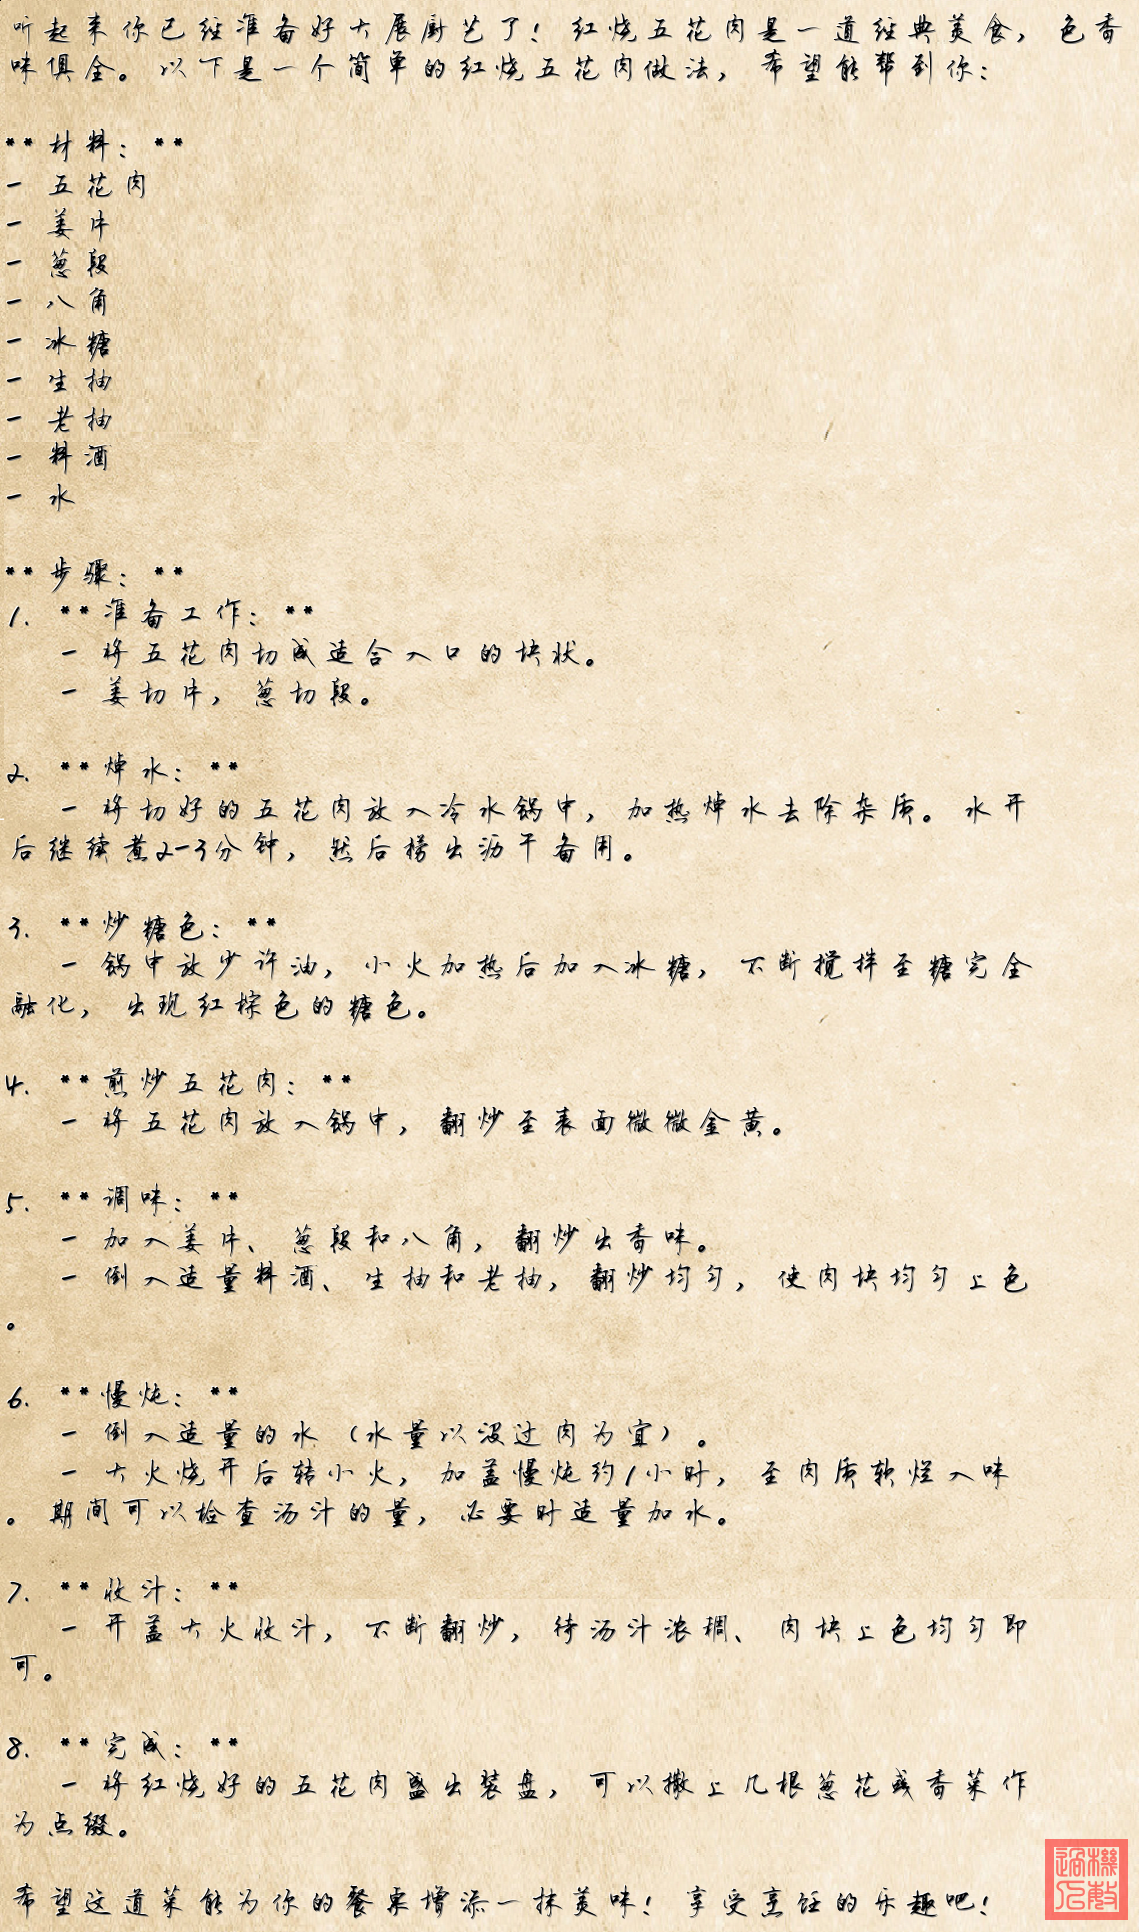 听起来你已经准备好大展厨艺了！红烧五花肉是一道经典美食，色香
味俱全。以下是一个简单的红烧五花肉做法，希望能帮到你：
**材料：**
- 五花肉
- 姜片
- 葱段
- 八角
- 冰糖
- 生抽
- 老抽
- 料酒
- 水
**步骤：**
1. **准备工作：**
- 将五花肉切成适合入口的块状。
- 姜切片，葱切段。
2. **焯水：**
- 将切好的五花肉放入冷水锅中，加热焯水去除杂质。水开
后继续煮2-3分钟，然后捞出沥干备用。
3. **炒糖色：**
- 锅中放少许油，小火加热后加入冰糖，不断搅拌至糖完全
融化，出现红棕色的糖色。
4. **煎炒五花肉：**
- 将五花肉放入锅中，翻炒至表面微微金黄。
5. **调味：**
- 加入姜片、葱段和八角，翻炒出香味。
- 倒入适量料酒、生抽和老抽，翻炒均匀，使肉块均匀上色
。
6. **慢炖：**
- 倒入适量的水（水量以没过肉为宜）。
- 大火烧开后转小火，加盖慢炖约1小时，至肉质软烂入味
。期间可以检查汤汁的量，必要时适量加水。
7. **收汁：**
- 开盖大火收汁，不断翻炒，待汤汁浓稠、肉块上色均匀即
可。
8. **完成：**
- 将红烧好的五花肉盛出装盘，可以撒上几根葱花或香菜作
为点缀。
希望这道菜能为你的餐桌增添一抹美味！享受烹饪的乐趣吧！